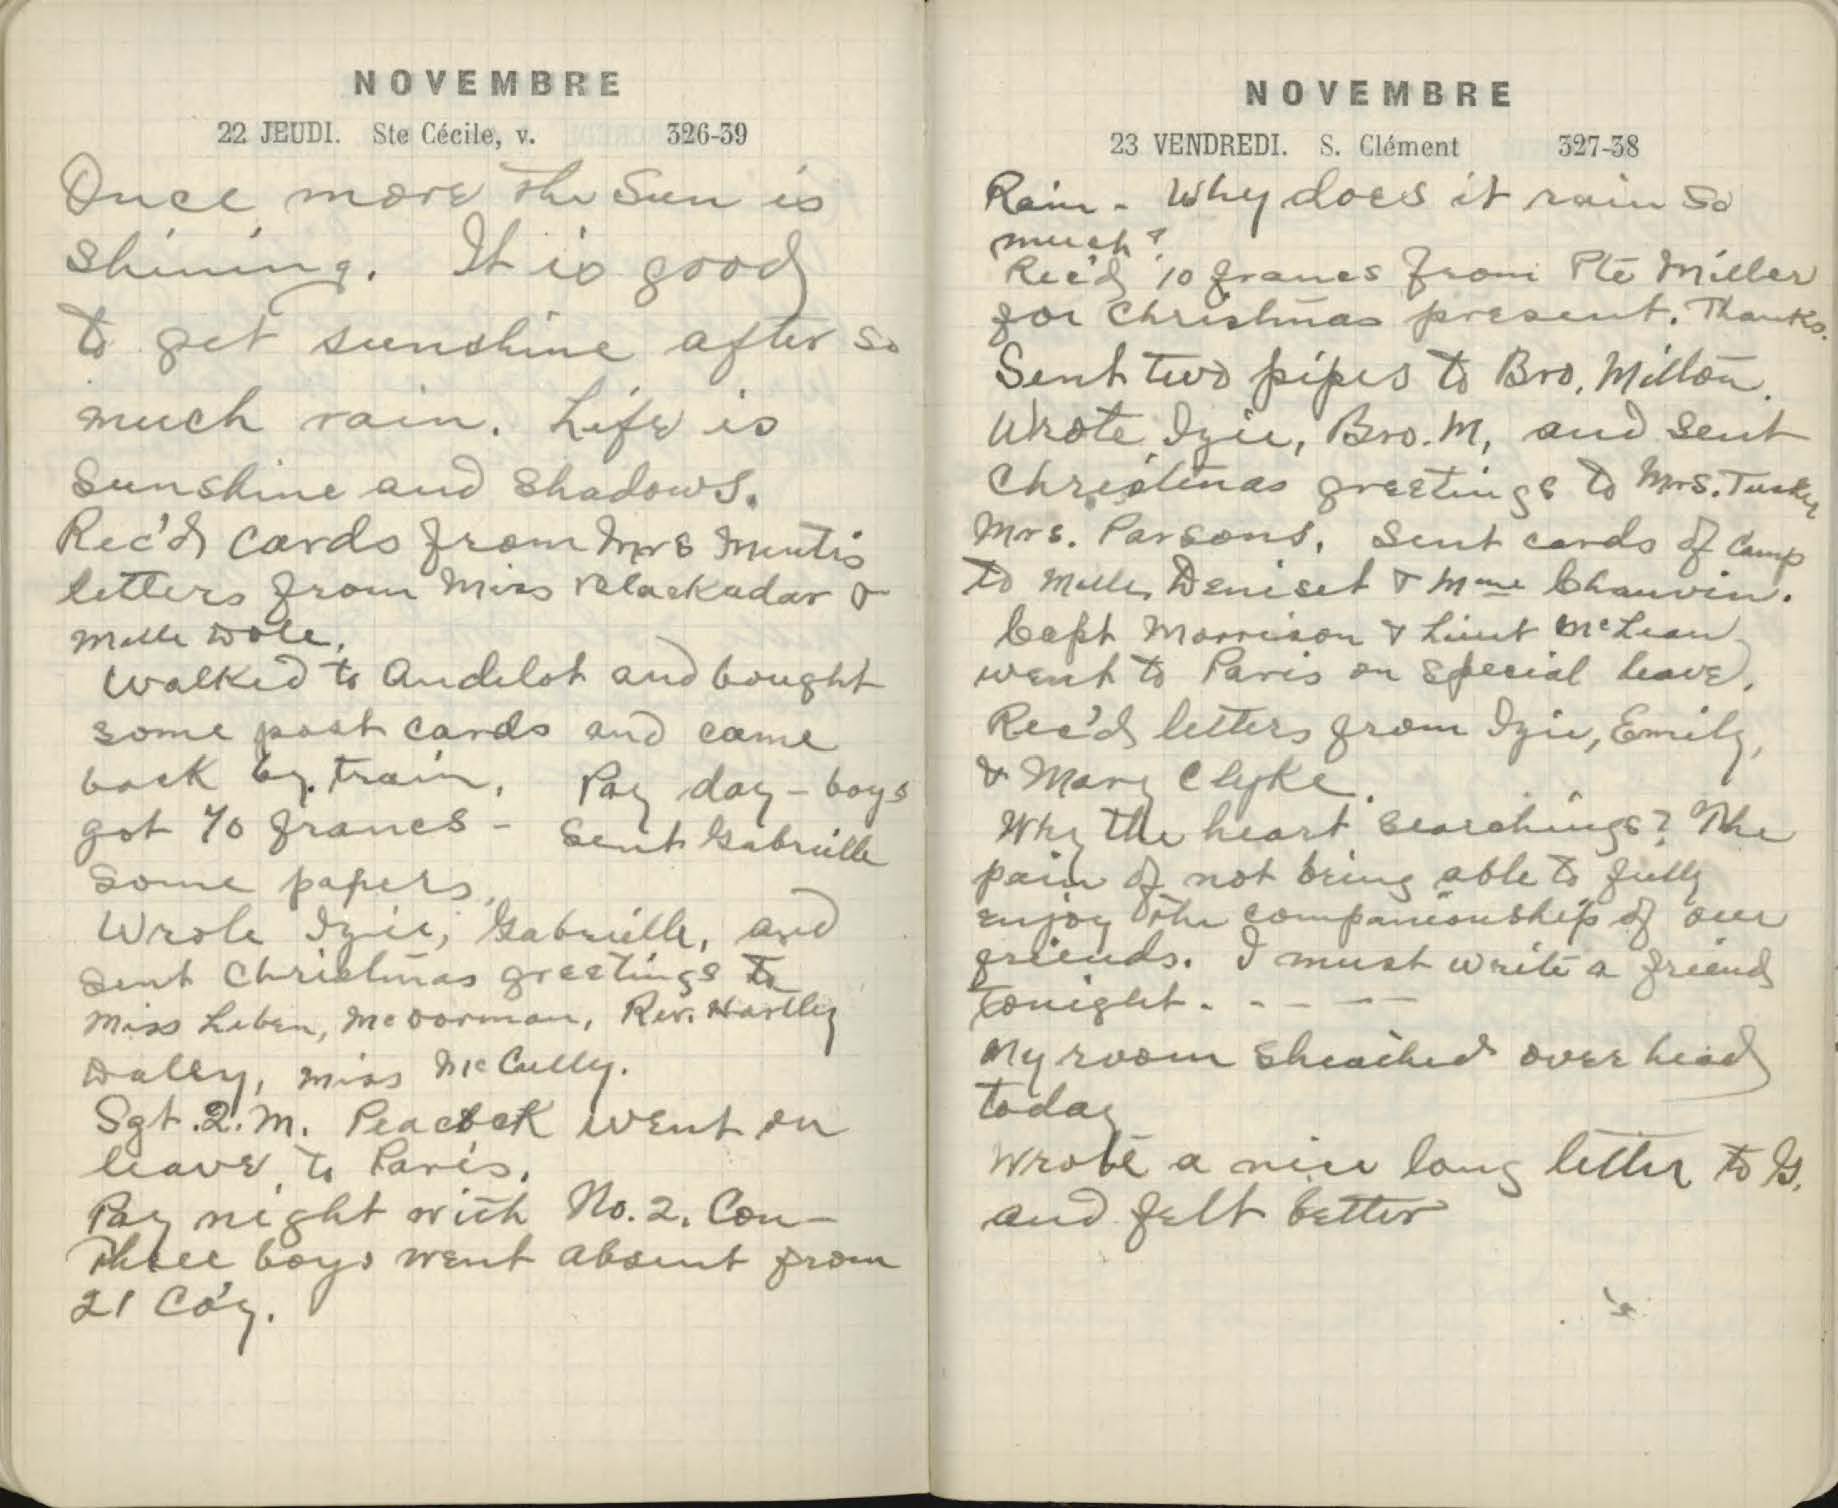 NOVEMBRE
22 JEUDI. Ste Cécile, v. 326-39
Once more the Sun is
shining. It is good
to get sunshine after so
much rain. Life is
Sunshine and Shadows.
Rec'd cards from Mrs Mentis
letters from Miss Blackadar &
Melle Dole.
Walked to Andelot and bought
some post cards and came
back by train. Pay day - boys
got 70 francs - Sent Gabrielle
Some papers.
Wrote Izie, Gabrielle, and
sent Christmas greetings to
Miss Leben, McDorman, Rev. Hartley
Daley, Miss McCully.
Sgt. Q. M. Peacock went on
leave to Paris.
Pay night with No. 2. Con -
Three boys went absent from
21 Co'y.
NOVEMBRE
23 VENDREDI. S. Clément 327-38
Rain - Why does it rain so
much?
Rec'd 10 francs from Pte Miller
for Christmas present. Thanks.
Sent two pipes to Bro. Milton.
Wrote Izie, Bro. M, and sent
Christmas greetings to Mrs. Tucker
Mrs. Parsons. Sent cards of Camp
to Melle Deniset & Mme Chauvin.
Capt Morrison & Lieut McLean
went to Paris on special leave.
Rec'd letters from Izie, Emily,
& Mary Clyke.
Why the heart searchings? The
pain of not being able to fully
enjoy the companionship of our
friends. I must write a friend
tonight. - - - -
My room sheathed over head
today
Wrote a nice long letter to G.
and felt better